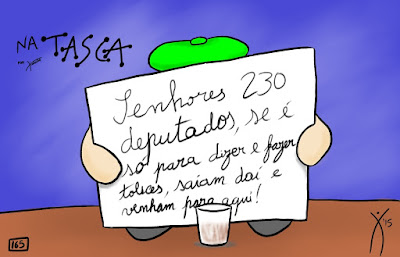 NA TASCA
Senhores 230
deputados, se é
só para dizer e fazer
tolices, saiam daí e
venham para aqui!
165
'15